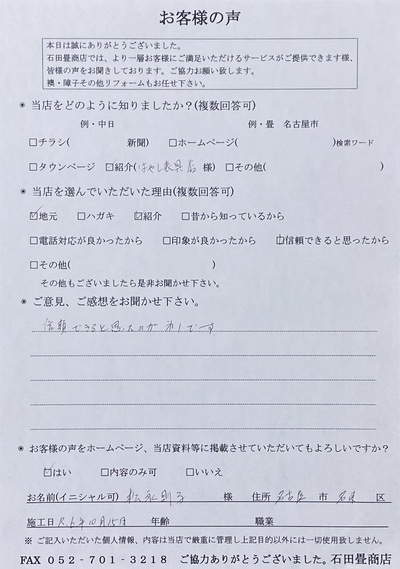 お客様の声
本日は誠にありがとうございました。
石田畳商店では、より一層お客様にご満足いただけるサービスがご提供できます様、
皆様の声をお聞きしております。ご協力お願い致します。
襖・障子その他リフォームもお任せ下さい。
* 当店をどのように知りましたか?(複数回答可)
例・中日 例・畳 名古屋市
□チラシ( 新聞) □ホームページ( )検索ワード
□タウンページ ☑紹介(はやし表具店 様) □その他( )
* 当店を選んでいただいた理由(複数回答可)
☑地元 □ハガキ ☑紹介 □昔から知っているから
□電話対応が良かったから □印象が良かったから ☑信頼できると思ったから
□その他( )
その他もございましたら是非お聞かせ下さい。
* ご意見、ご感想をお聞かせ下さい。
信頼できると思ったのが 第1です
* お客様の声をホームページ、当店資料等に掲載させていただいてもよろしいですか?
☑はい □内容のみ可 □いいえ
お名前(イニシャル可) 様 住所 名古屋 市 名東 区
施工日 R.6年10月15日 年齢 職業
※ ご記入いただいた個人情報、内容は当店で厳重に管理し上記目的以外には一切使用致しません。
FAX 052-701-3218 ご協力ありがとうございました。石田畳商店